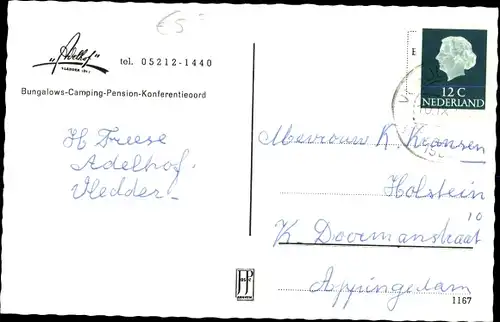 €5
"Adelhof"
VLEDDER (Dr.)
tel. 05212-1440
Bungalows-Camping-Pension-Konferentieoord
H Freese
Adelhof.
Vledder.
12 C
NEDERLAND
Mevrouw K Kransen
Holstein
10
K. Doormanstraat
Appingedam
JP
1167